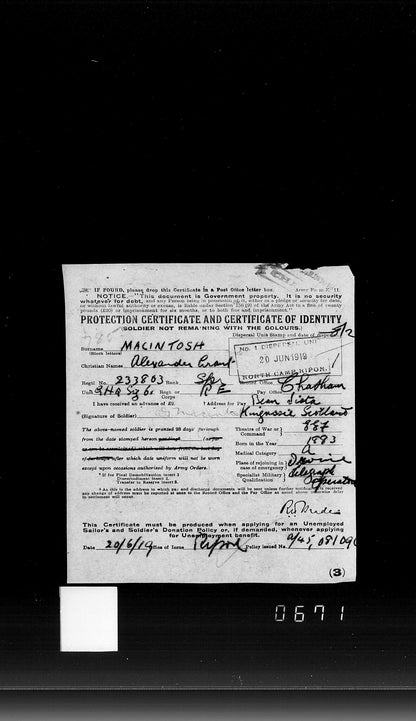 IF FOUND, please drop this Certificate in a Post Office letter box. Army Form Z. 11.
NOTICE. "This document is Government property. It is no security
whatever for debt, and any Person being in possession of it, either as a pledge or security for debt,
or without lawful authority or excuse, is liable under Section 156 (9) of the Army Act to a fine of twenty
pounds (£20) or imprisonment for six months, or to both fine and imprisonment."
PROTECTION CERTIFICATE AND CERTIFICATE OF IDENTITY
(SOLDIER NOT REMAINING WITH THE COLOURS)
Dispersal Unit Stamp and date of
No. 1 DISPERSAL UNIT
20 JUN 1919
NORTH CAMP RIPON.
Surname MACINTOSH
(Block letters)
Christian Names Alexander Grant
Regtl No. 233803 Rank Spr
Office. Chatham
Unit GHQ Sig Co Regt. or Corps RE
Pay Office
I have received an advance of £2. † Address for Pay Dean Sista
(Signature of Soldier)
Kingussie Scotland
The above-named soldier is granted 28 days' furlough
from the date stamped hereon
after which date uniform will not be worn
except upon occasions authorised by Army Orders.
Theatre of War or Command 887
Born in the Year 1883
Medical Category A
Place of rejoining in case of emergency
Specialist Military Qualification Telegraph Operator
* If for Final Demobilization insert 1
Disembodiment insert 2.
Transfer to Reserve insert 3.
† As this is the address to which pay and discharge documents will be sent unless further notification is received
any change of address must be reported at once to the Record Office and the Pay Office as noted above, otherwise delay
in settlement will occur.
This Certificate must be produced when applying for an Unemployed
Sailor's and Soldier's Donation Policy or, if demanded, whenever applying
for Unemployment benefit.
Date 20/6/19 Office of Issue Ripon Policy issued No. A/45,
(3)
0671